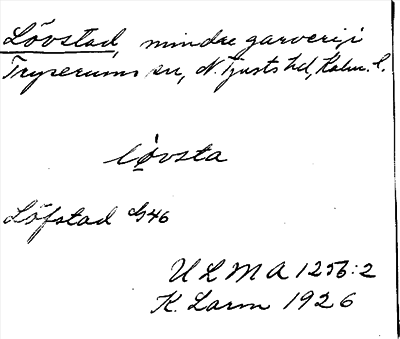 Lövstad, mindre garveri i
Tryserums sn, N. Tjusts hd, Kalm. l.
lövsta
Löfstad G46
ULMA 1256:2
K. Larm 1926